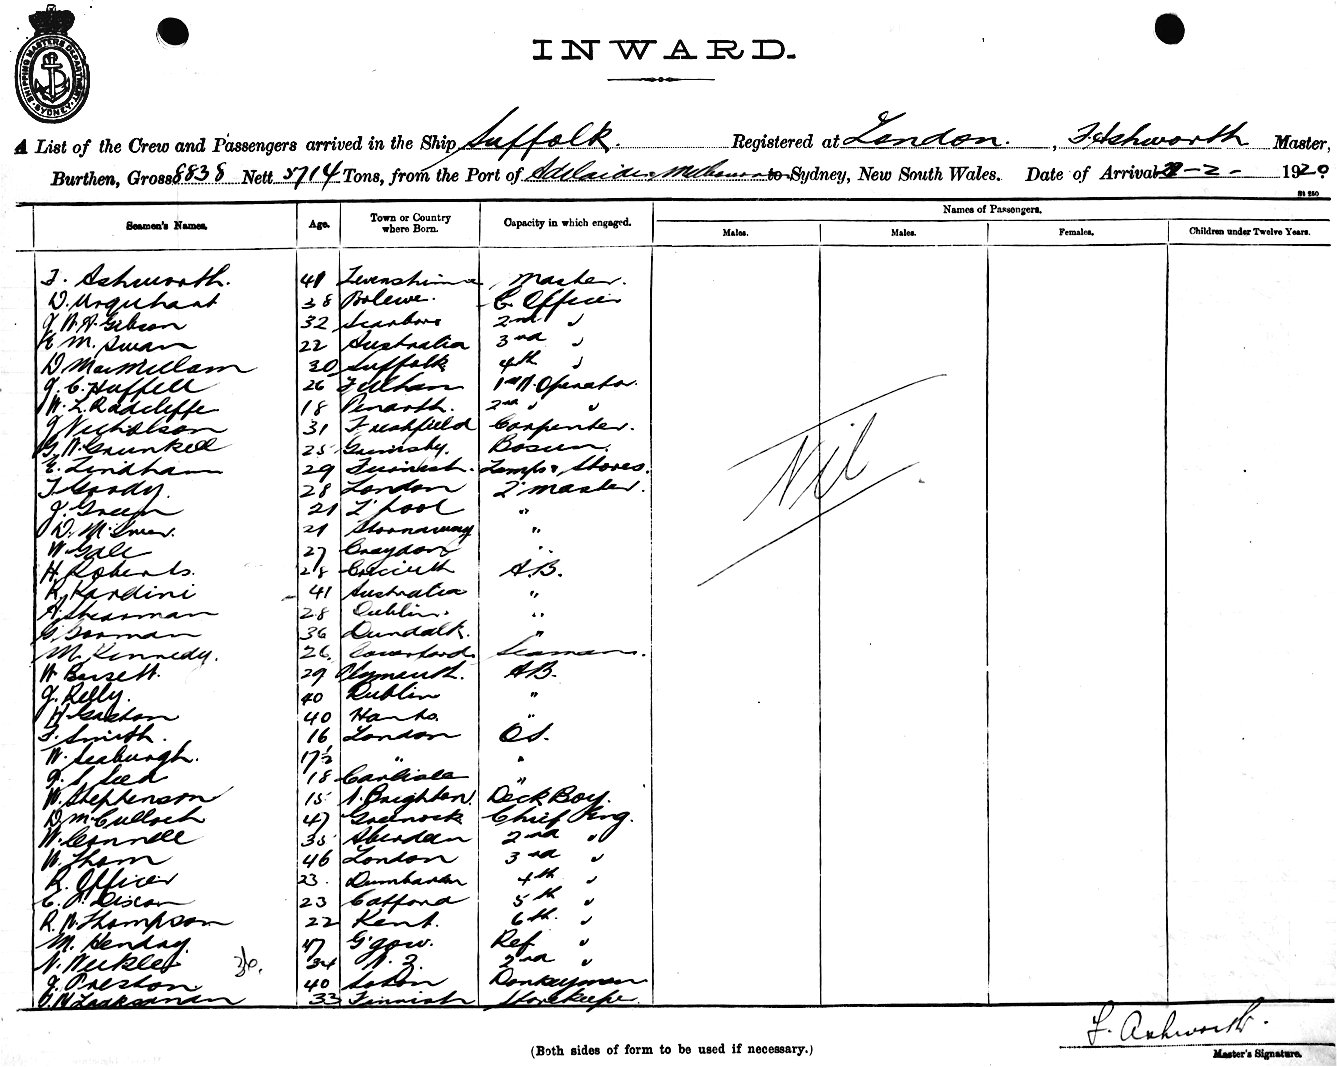 SHIPPING MASTERS DEPARTMENT SYDNEY
INWARD.
A List of the Crew and Passengers arrived in the Ship Suffolk. Registered at London. , F. Ashworth Master,
Burthen, Gross 8838 Nett 5714 Tons, from the Port of Adelaide Melbourne to Sydney, New South Wales. Date of Arrival -2- 1920
Seamen's Names. Age. Town or Country where Born. Capacity in which engaged. Names of Passengers.
Males. Males. Females. Children under Twelve Years.
F. Ashworth. 41 Master.
D. Urquhart 38 C. Officer
Gibson 32 Scarboro 2nd "
M. Swan 22 Australia 3rd "
D MacMillam 30 Suffolk 4th "
J. C. Huffell 26 Fulham 1st W. Operator.
W. L. Radcliffe 18 Penarth. 2nd " "
J Nicholson 31 Freshfield Carpenter.
G. W. Grunkell 25 Grimsby. Bosun.
E. Lindham 29 Lamps & Stores.
T. Goody. 28 London Q' master.
J. Green 21 L'pool "
D. 21 Stornaway "
W Gale 27 Croydon "
H. Roberts. 28 A.B.
R. Nardini 41 Australia "
A. Shearman 28 Dublin. "
G. Gorman 36 Dundalk. "
M. Kennedy. 26 Seaman.
W Bassett. 29 Plymouth. AB.
J. Kelly. 40 Dublin "
H Gaston 40 Hants. "
F. Smith. 16 London O.S.
W. Seaburgh. 17½ " "
18 Carlisle "
W. Stephenson 15 N. Brighton. Deck Boy.
D. McCulloch 47 Greenock Chief Eng.
W. Connell 35 Aberdeen 2nd "
W. Thom 46 London 3rd "
R. Officer 23. 4th "
Dixon 23 Catford 5th "
R. W. Thompson 22 Kent. 6th "
M. Hendry. 47 G'gow. Ref "
N. 34 N. Z. 2nd "
J. Preston 40 Donkeyman
33 Finnish Storekeeper
Nil
F. Ashworth.
Master's Signature.
(Both sides of form to be used if necessary.)